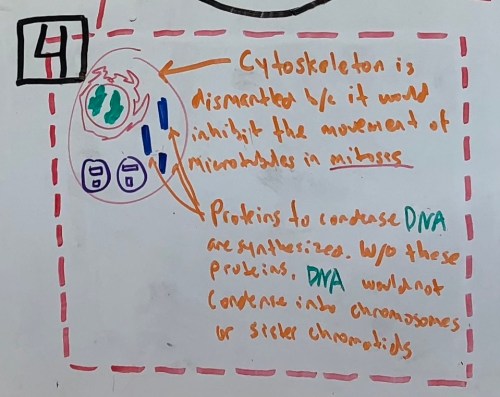 4
Cytoskeleton is
dismantled b/c it would
inhibit the movement of
microtubules in mitosis
Proteins to condense DNA
are synthesized. W/o these
proteins, DNA would not
condense into chromosomes
or sister chromatids